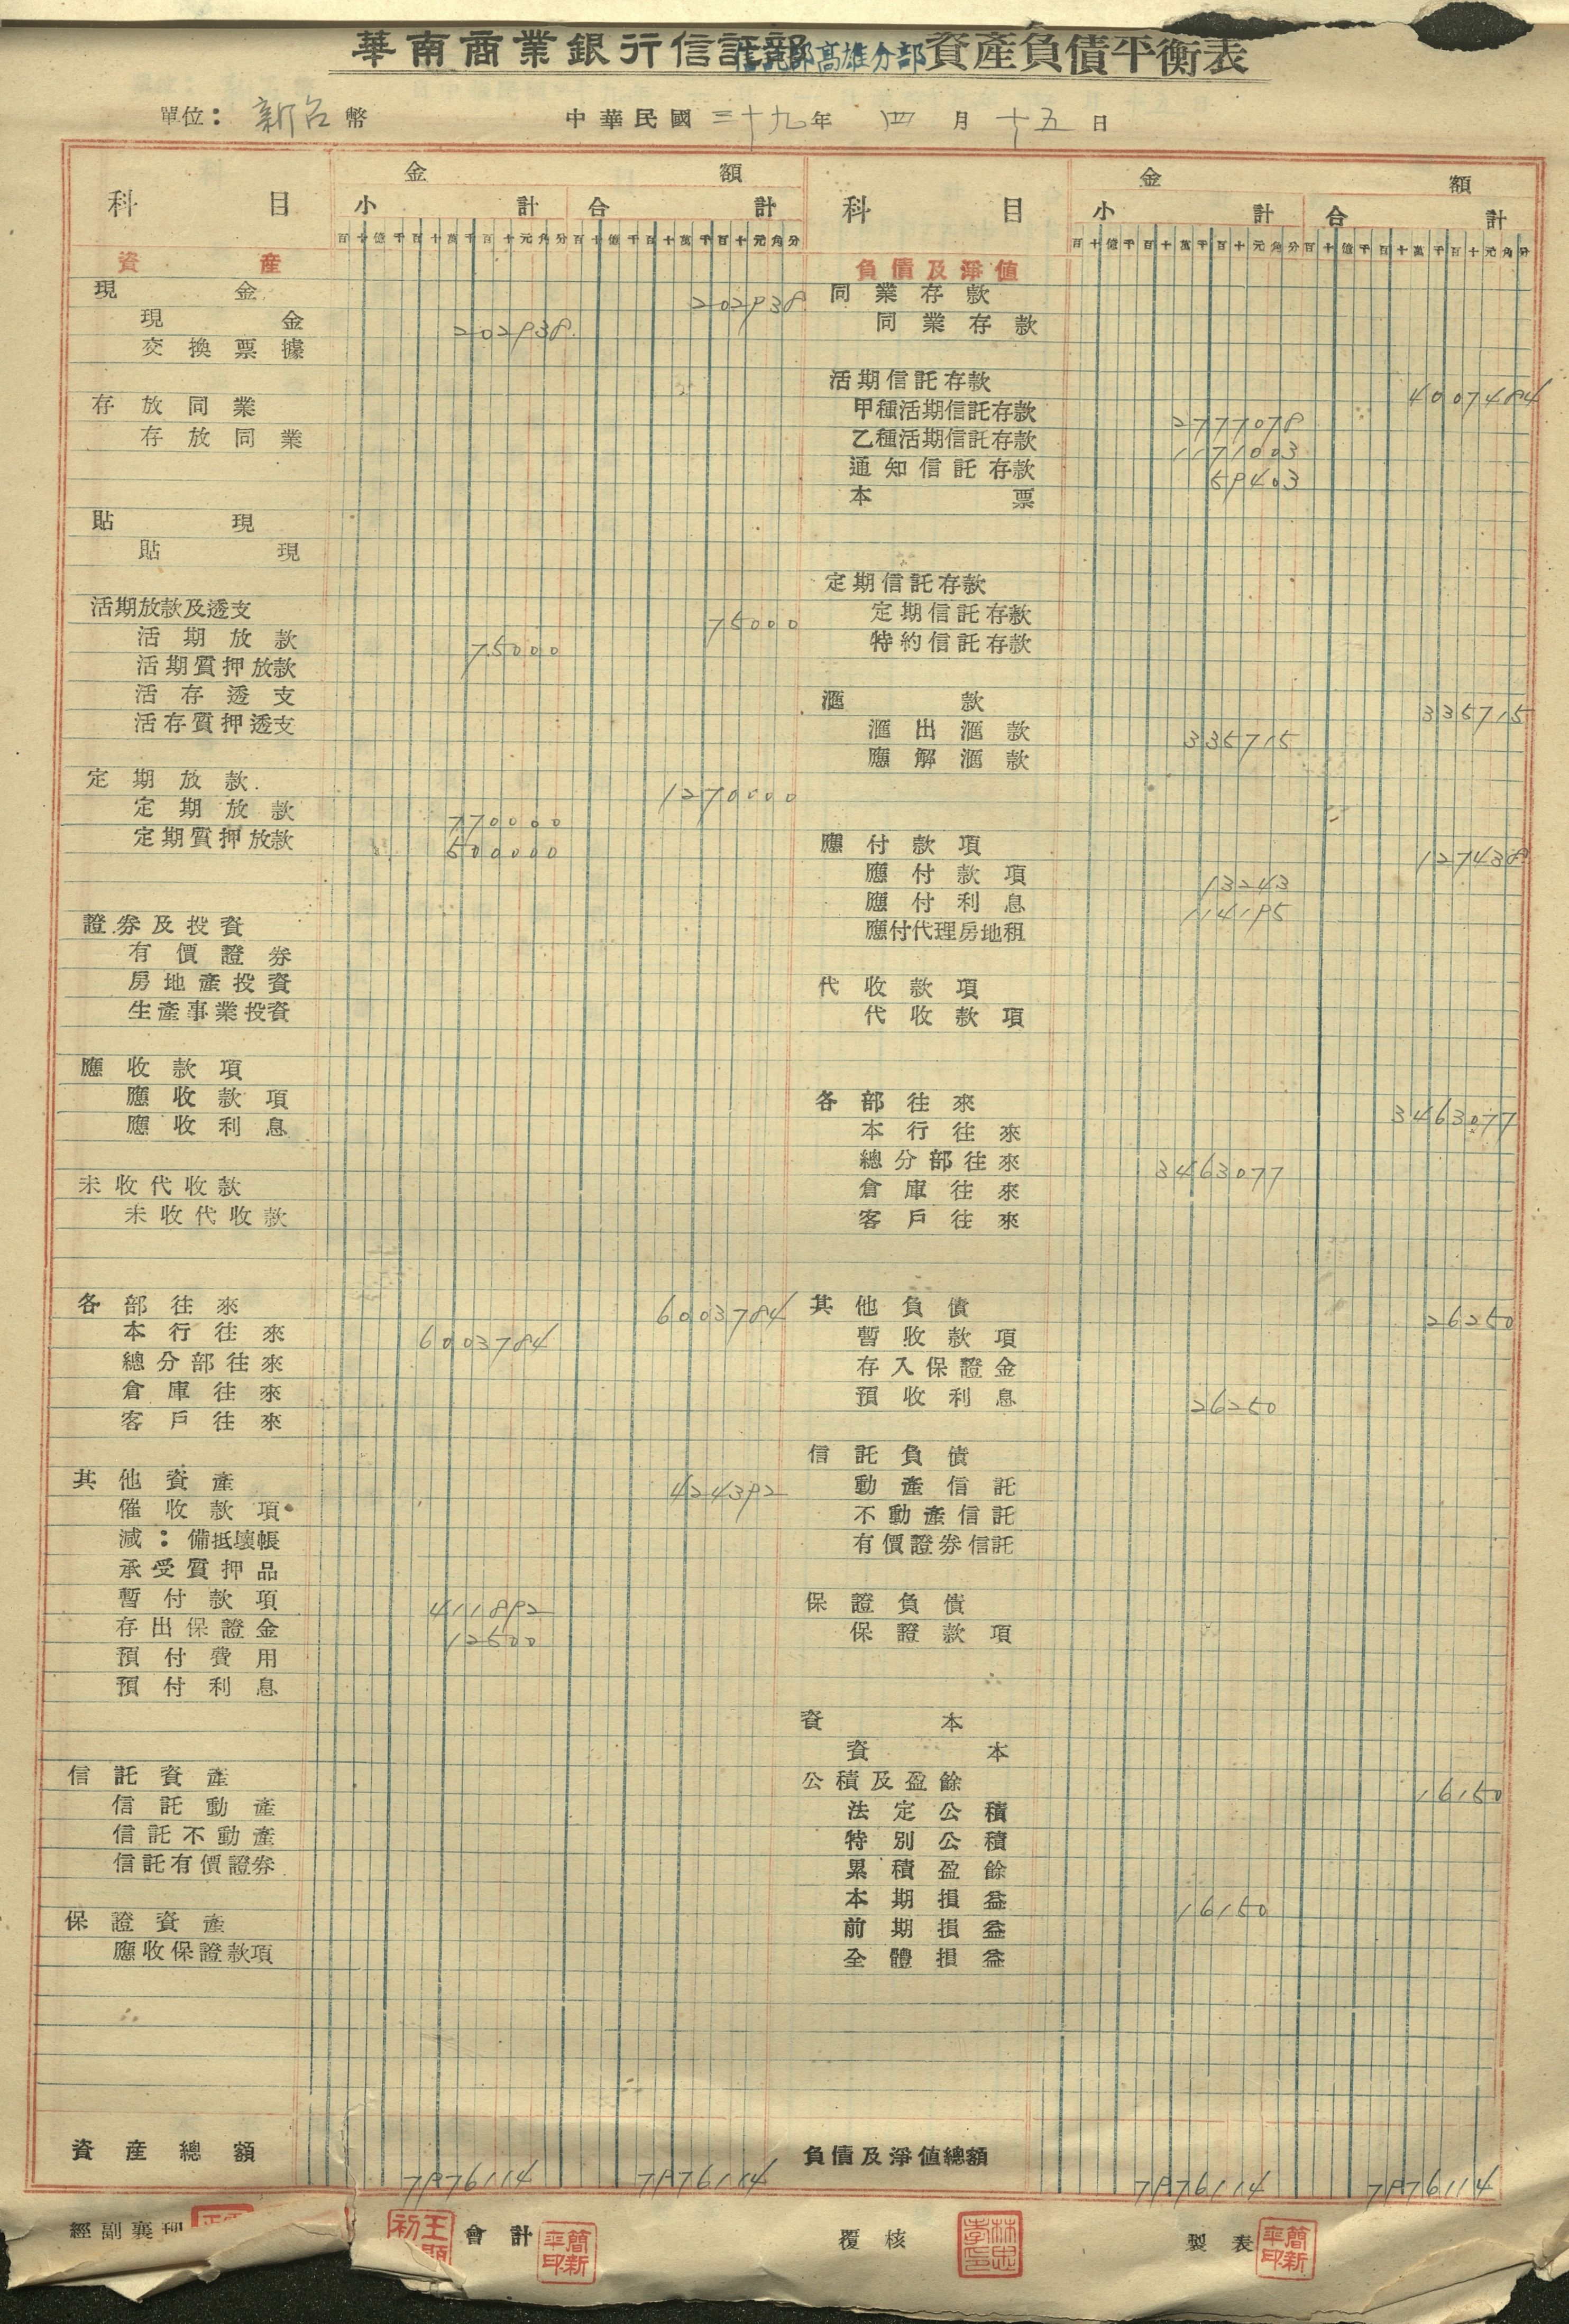 華南商業銀行信託部資產負債平衡表
信託部高雄分部
單位:新台幣 中華民國三十九年四月十五日
科目 金額
小計 合計
百十億千百十萬千百十元角分 百十億千百十萬千百十元角分
資產
現金 202938
現金 202938
交換票據
存放同業
存放同業
貼現
貼現
活期放款及透支 75000
活期放款 75000
活期質押放款
活存透支
活存質押透支
定期放款 1270000
定期放款 770000
定期質押放款 500000
證券及投資
有價證券
房地產投資
生產事業投資
應收款項
應收款項
應收利息
未收代收款
未收代收款
各部往來 6003784
本行往來 6003784
總分部往來
倉庫往來
客戶往來
其他資產 424392
催收款項
減:備抵壞帳
承受質押品
暫付款項 411892
存出保證金 12500
預付費用
預付利息
信託資產
信託動產
信託不動產
信託有價證券
保證資產
應收保證款項
資產總額 7976114 7976114
科目 金額
小計 合計
百十億千百十萬千百十元角分 百十億千百十萬千百十元角分
負債及淨值
同業存款
同業存款
活期信託存款 4007484
甲種活期信託存款 2777078
乙種活期信託存款 1171003
通知信託存款 59403
本票
定期信託存款
定期信託存款
特約信託存款
滙款 335715
滙出滙款 335715
應解滙款
應付款項 127438
應付款項 13243
應付利息 114195
應付代理房地租
代收款項
代收款項
各部往來 3463077
本行往來
總分部往來 3463077
倉庫往來
客戶往來
其他負債 26250
暫收款項
存入保證金
預收利息 26250
信託負債
動產信託
不動產信託
有價證券信託
保證負債
保證款項
資本
資本
公積及盈餘 16150
法定公積
特別公積
累積盈餘
本期損益 16150
前期損益
全體損益
負債及淨值總額 7976114 7976114
經副襄理 會計 簡新華印 覆核 製表 簡新華印